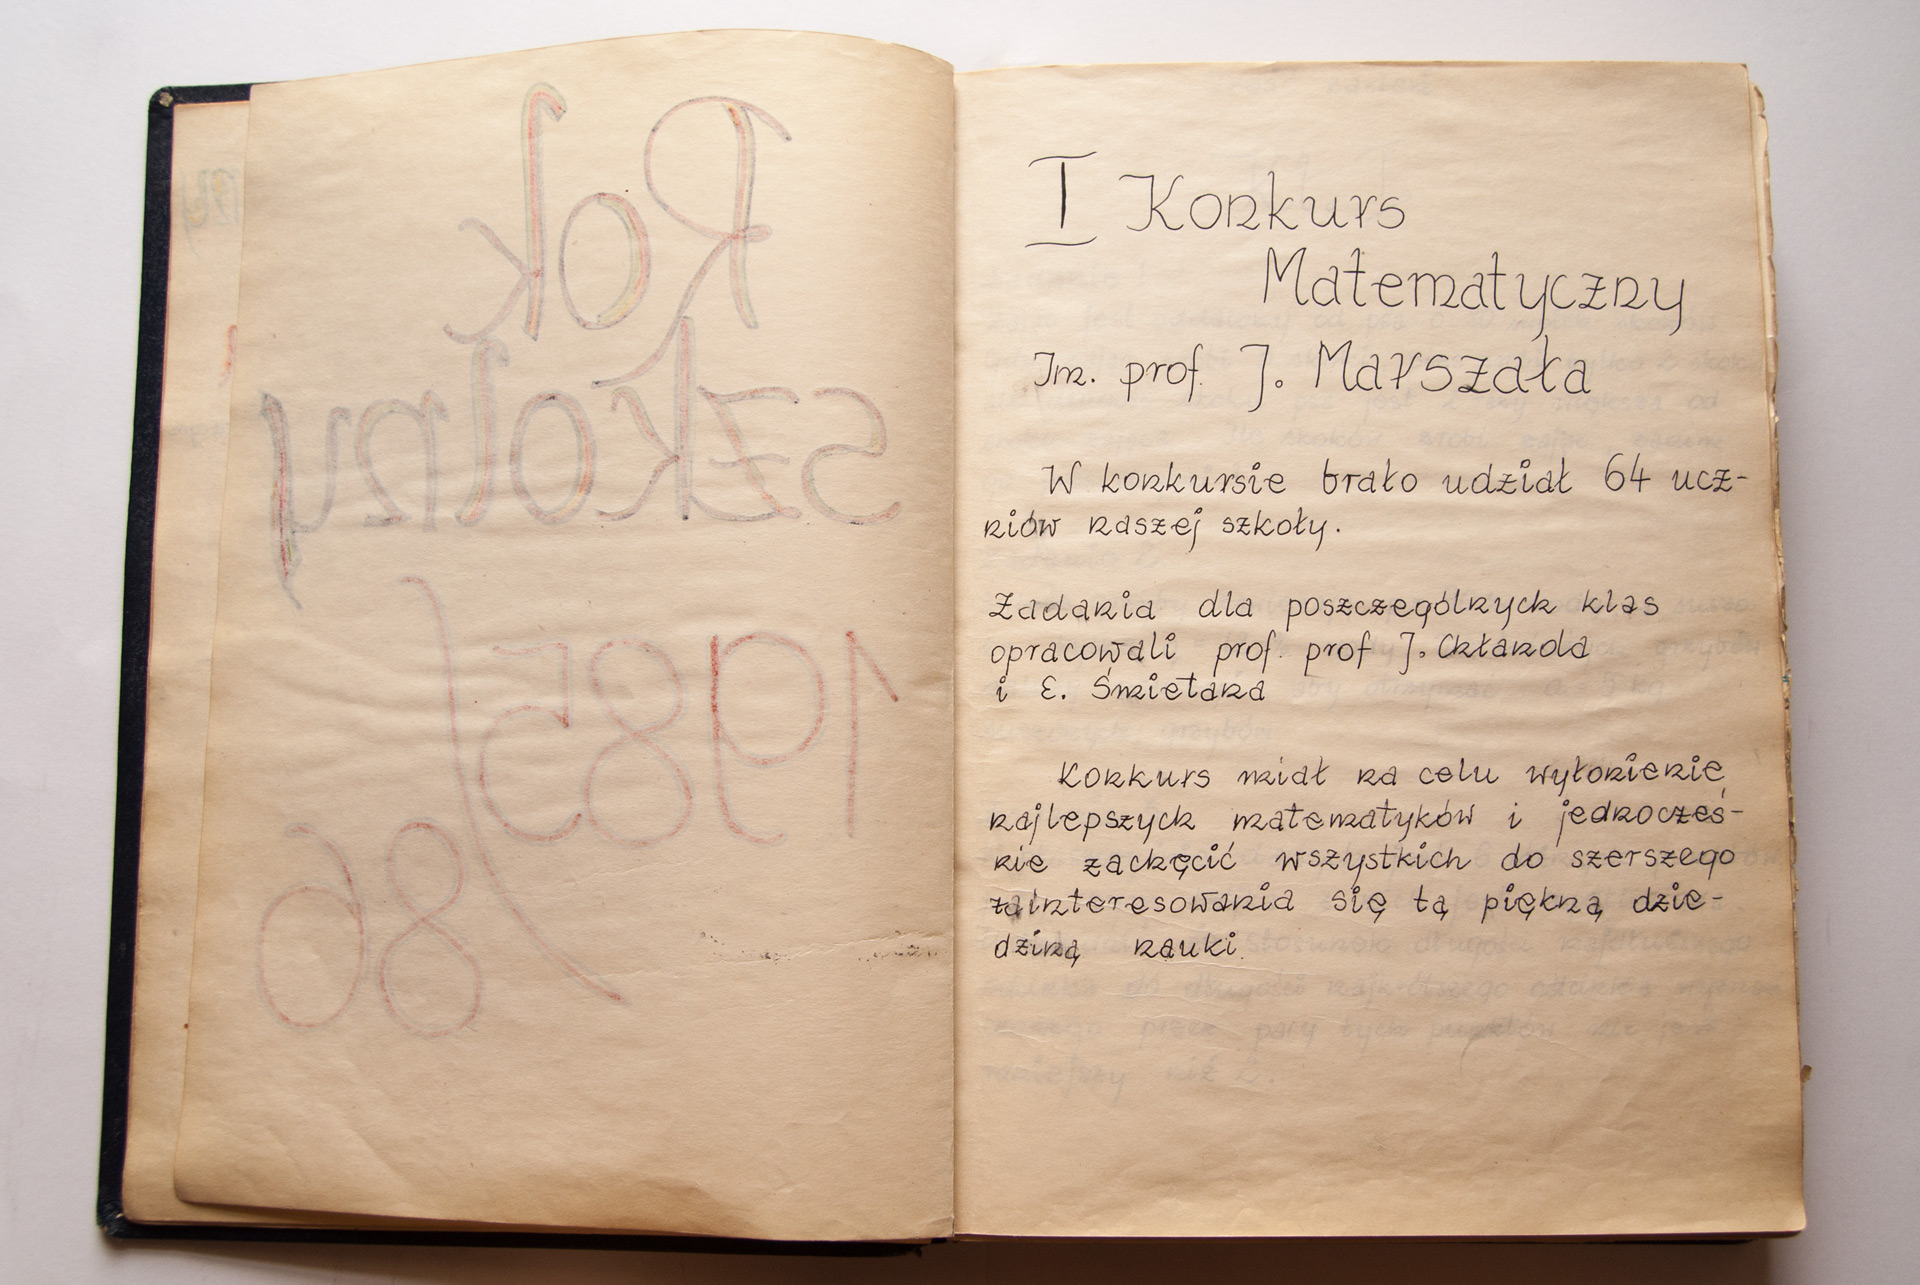 Rok
szkolny
1985/
86
I Konkurs
Matematyczny
Im. prof. J. Marszała
W konkursie brało udział 64 ucz-
niów naszej szkoły.
Zadania dla poszczególnych klas
opracowali prof. prof J. Chłanda
i E. Śmietana
Konkurs miał na celu wyłonienie
najlepszych matematyków i jednocześ-
nie zachęcić wszystkich do szerszego
zainteresowania się tą piękną dzie-
dziną nauki.